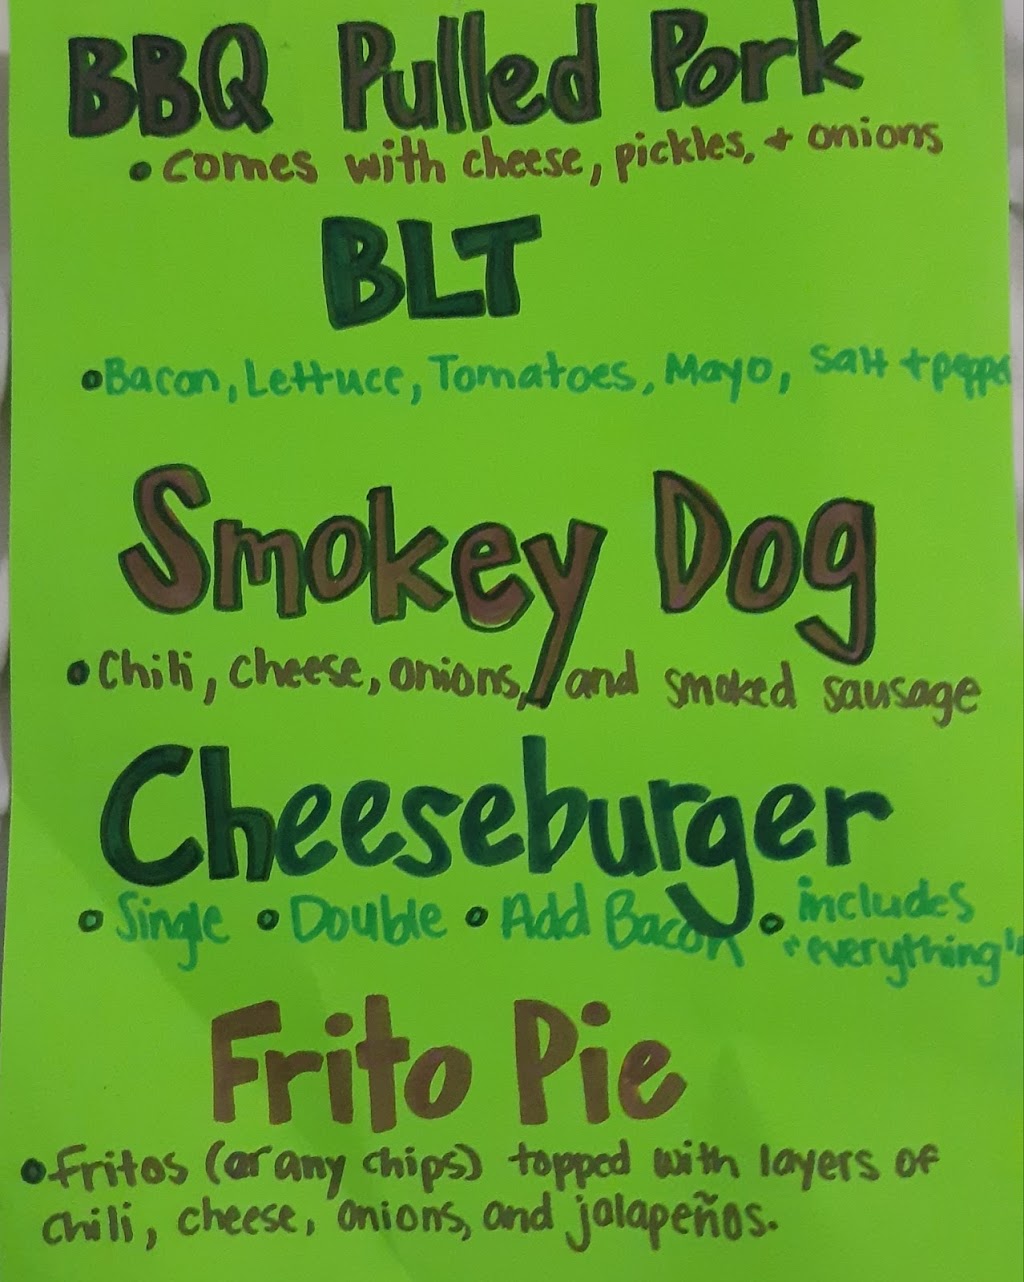 BBQ Pulled Pork
• Comes with cheese, pickles, + onions
BLT
• Bacon, Lettuce, Tomatoes, Mayo, Salt + pepper
Smokey Dog
• Chili, cheese, onions, and smoked sausage
Cheeseburger
• Single • Double • Add Bacon • includes
"everything"
Frito Pie
• Fritos (or any chips) topped with layers of
chili, cheese, onions, and jalapeños.